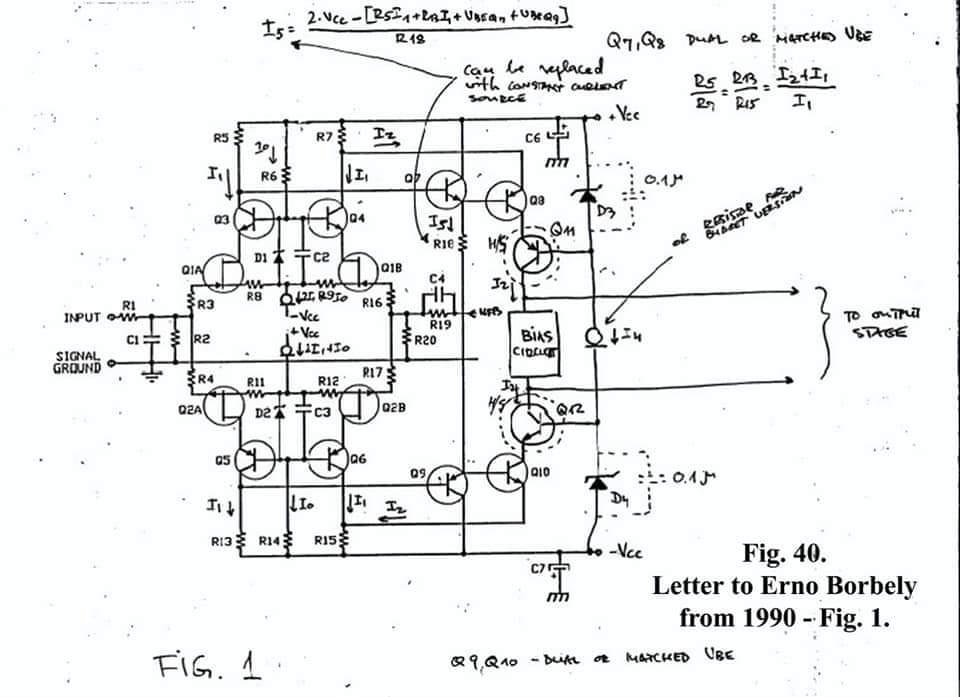 I5 = 2·Vcc – [R5I1+R13I1+VBEQ7+VBEQ9]
R18
Q7,Q8 DUAL OR MATCHED VBE
R5/R7 = R13/R15 = I2+I1/I1
can be replaced
with CONSTANT CURRENT
SOURCE
+Vcc
C6
R5
R7
I2
I0
R6
I1
I1
Q7
Q8
0.1μ
D3
OR RESISTOR FOR
BUDGET VERSION
Q3
Q4
I5
R18
H/S
Q11
D1
C2
Q1A
Q1B
R8
2I1
R9
I0
R16
C4
I2
R3
-Vcc
R1
INPUT
+Vcc
R19
NFB
C1
R2
R20
BIAS
CIRCUIT
I4
TO OUTPUT
STAGE
SIGNAL
GROUND
2I1+I0
R4
R17
R11
R12
I2
H/S
Q12
Q2A
D2
C3
Q2B
Q5
Q6
Q9
Q10
0.1μ
D4
I1
I0
I1
I2
R13
R14
R15
-Vcc
C7
Fig. 40.
Letter to Erno Borbely
from 1990 - Fig. 1.
FIG. 1
Q9,Q10 - DUAL OR MATCHED VBE